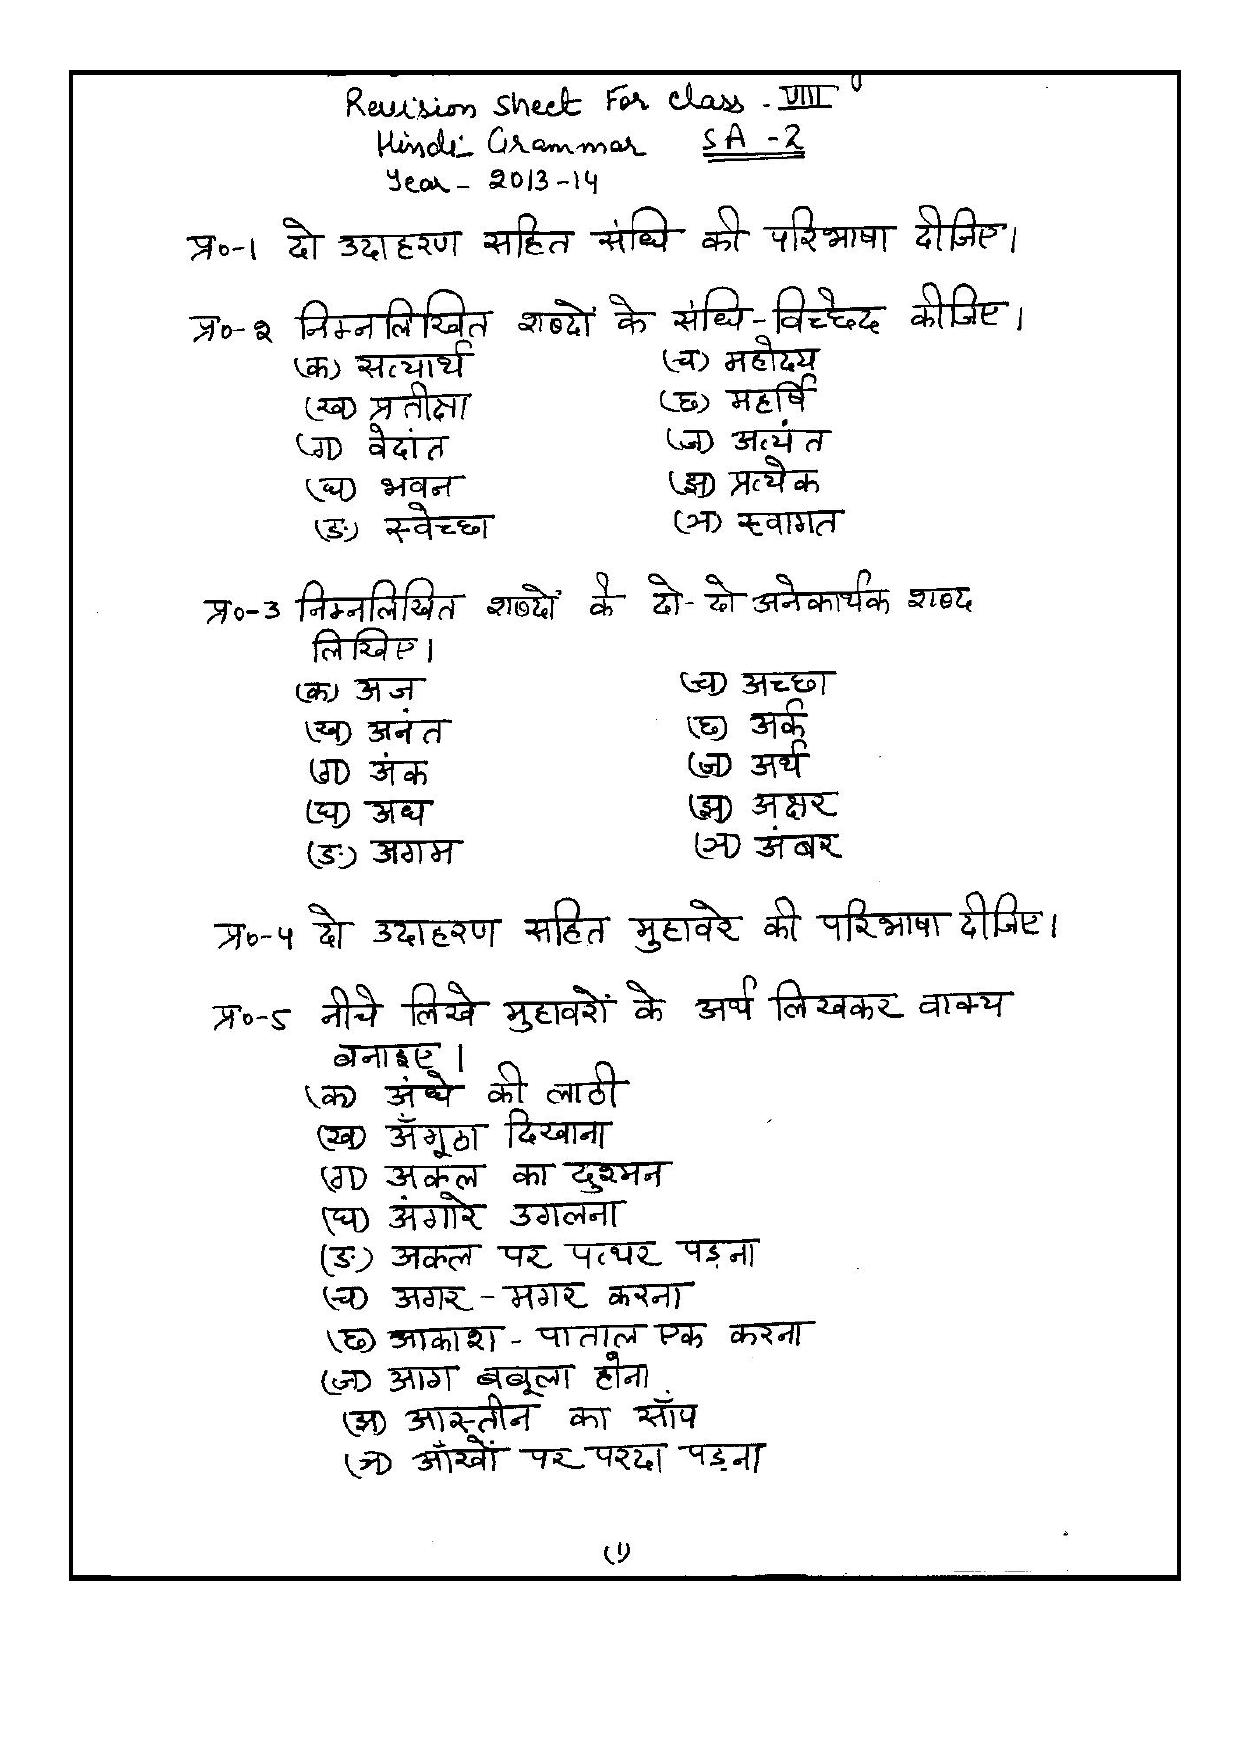 Revision Sheet For Class - VIII
Hindi Grammar SA - 2
Year - 2013-14
प्र०-1 दो उदाहरण सहित संधि की परिभाषा दीजिए।
प्र०-2 निम्नलिखित शब्दों के संधि-विच्छेद कीजिए।
(क) सत्यार्थ (च) महोदय
(ख) प्रतीक्षा (छ) महर्षि
(ग) वेदांत (ज) अत्यंत
(घ) भवन (झ) प्रत्येक
(ङ) स्वेच्छा (ञ) स्वागत
प्र०-3 निम्नलिखित शब्दों के दो-दो अनेकार्थक शब्द
लिखिए।
(क) अज (च) अच्छा
(ख) अनंत (छ) अर्क
(ग) अंक (ज) अर्थ
(घ) अध (झ) अक्षर
(ङ) अगम (ञ) अंबर
प्र०-4 दो उदाहरण सहित मुहावरे की परिभाषा दीजिए।
प्र०-5 नीचे लिखे मुहावरों के अर्थ लिखकर वाक्य
बनाइए।
(क) अंधे की लाठी
(ख) अँगूठा दिखाना
(ग) अकल का दुश्मन
(घ) अंगारे उगलना
(ङ) अकल पर पत्थर पड़ना
(च) अगर-मगर करना
(छ) आकाश-पाताल एक करना
(ज) आग बबूला होना
(झ) आस्तीन का साँप
(ञ) आँखों पर परदा पड़ना
(1)